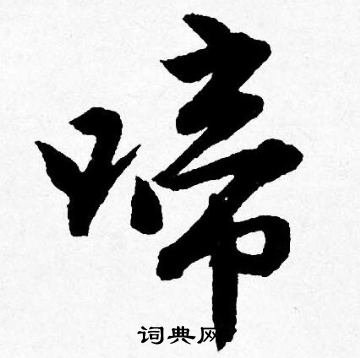 啼
词典网